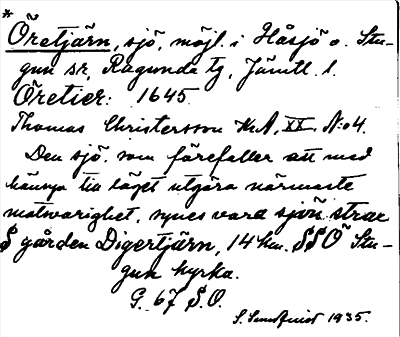 *
Öretjärn, sjö, möjl. i Håsjö o. Stu-
gun sr, Ragunda tg, Jämtl. l.
Öretier: 1645.
Thomas Christersson K.A, XX, N:o 4.
Den sjö, som förefaller att med
hänsyn till läget utgöra närmaste
motsvarighet, synes vara sjön strax
S gården Digertjärn, 14 km. SSÖ Stu-
gun kyrka.
G. 67 S.O.
S. Sundquist 1935.